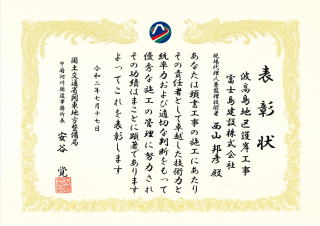 表彰状
波高島地区護岸工事
富士島建設株式会社
現場代理人兼監理技術者
西山邦彦殿
あなたは頭書工事の施工にあたり
その責任者として卓越した技術力と
統率力および適切な判断をもって
優秀な施工の管理に努力され
その功績はまことに顕著であります
よってこれを表彰します
令和二年七月十七日
国土交通省関東地方整備局
甲府河川国道事務所長
安谷覚